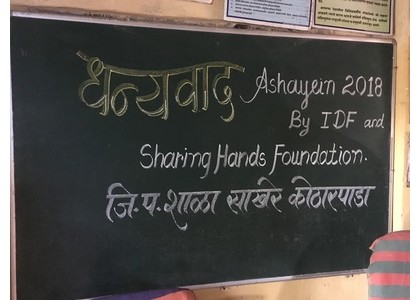 धन्यवाद Ashayein 2018
By IDF and
Sharing Hands Foundation.
जि.प.शाळा साखरे कोठारपाडा